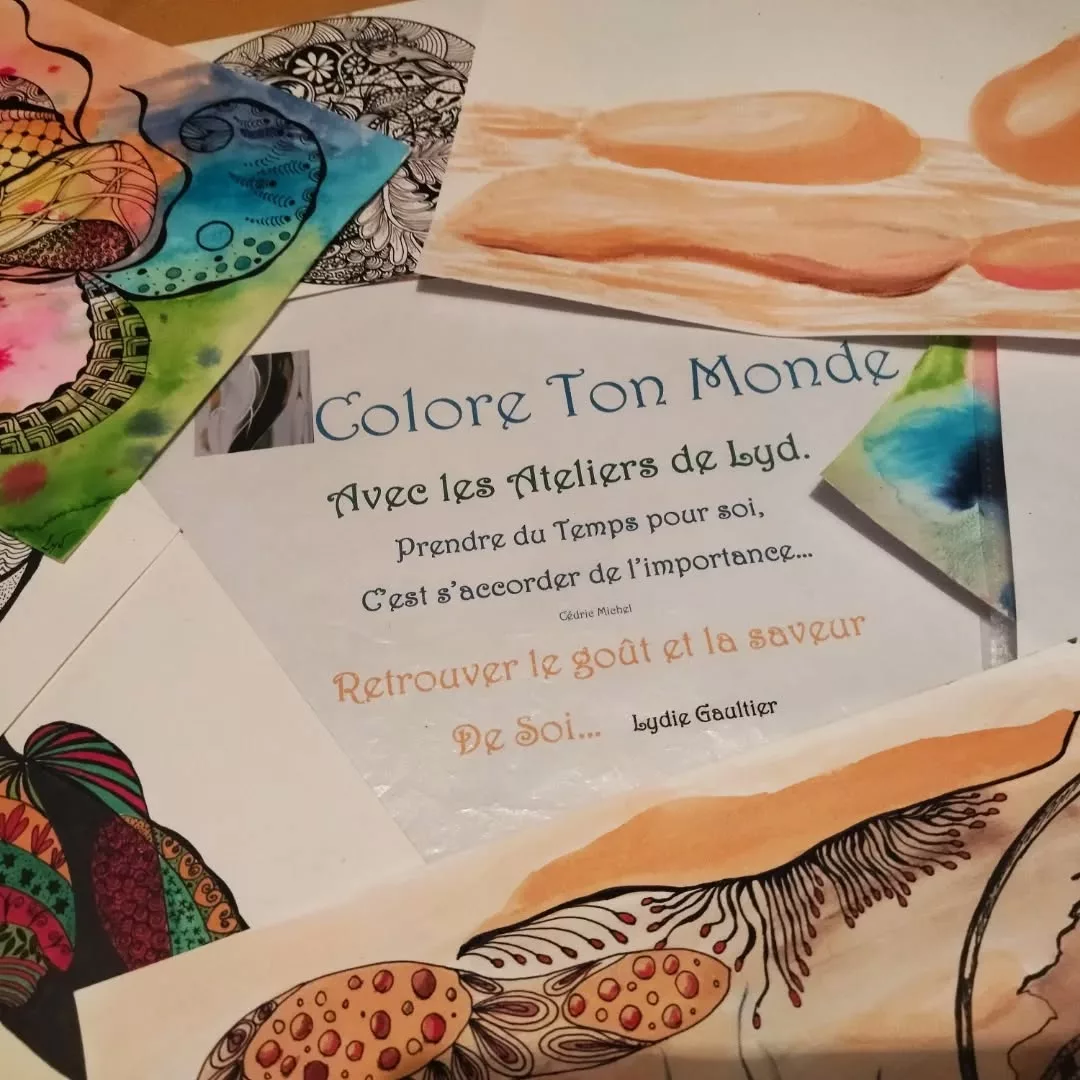 Colore Ton Monde
Avec les Ateliers de Lyd.
Prendre du Temps pour soi,
C'est s'accorder de l'importance...
Cédric Michel
Retrouver le goût et la saveur
De Soi... Lydie Gaultier